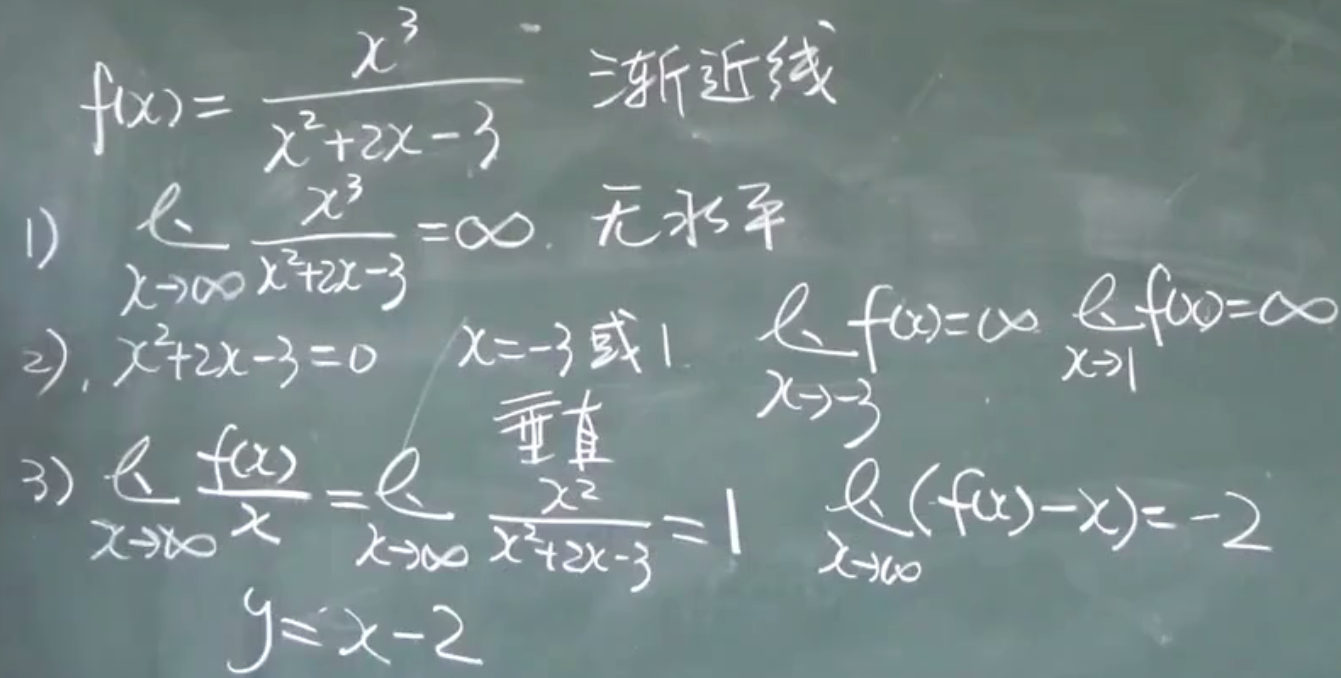 f(x) = x³/(x²+2x-3) 渐近线
1) lim x→∞ x³/(x²+2x-3) = ∞. 无水平
2). x²+2x-3=0 x=-3或1. 垂直 lim x→-3 f(x)=∞ lim x→1 f(x)=∞
3) lim x→∞ f(x)/x = lim x→∞ x²/(x²+2x-3) = 1 lim x→∞ (f(x)-x)=-2
y=x-2